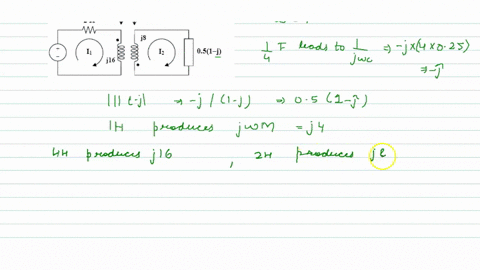 j8
I₁
j16
I₂
0.5(1-j)
1/4 F leads to 1/jωc ⇒ -j×(4×0.25)
⇒ -ĵ
1||(-j) ⇒ -j / (1-j) ⇒ 0.5 (1-ĵ)
1H produces jωM = j4
4H produces j16 , 2H produces j8